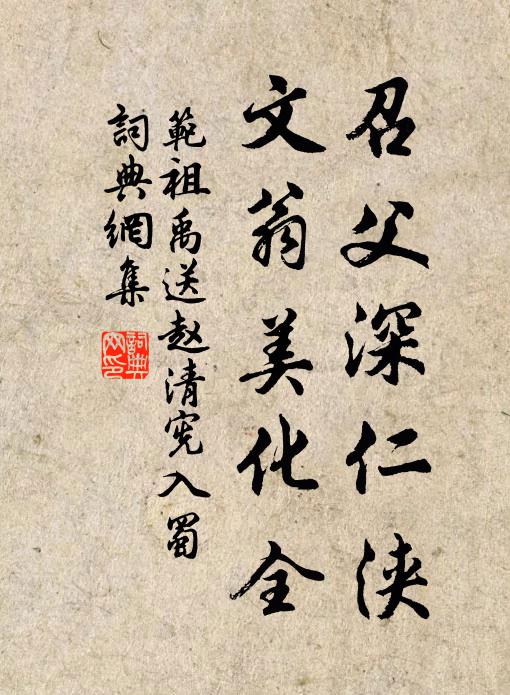 召父深仁浹
文翁美化全
範祖禹送赵清宪入蜀
詞典網集
詞典网印